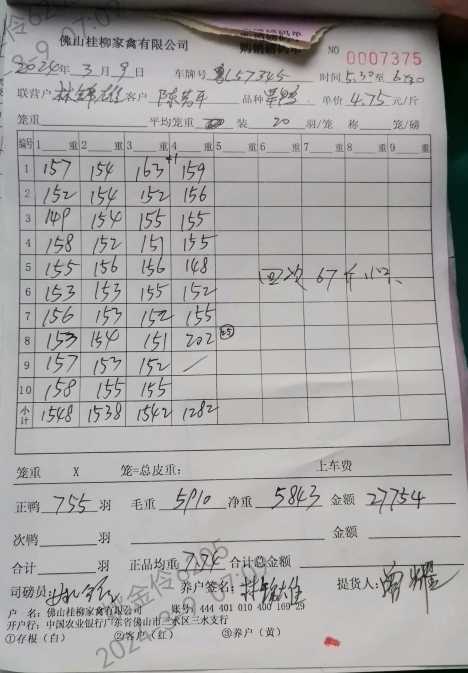 佛山桂柳家禽有限公司 购销磅码单 NO 0007375
2024年 3月 9日 车牌号 粤L57345 时间 5:30 至 6:20
联营户 林锦雄 客户 陈 平 品种 单价 4.75 元/斤
笼重 平均笼重 装 20 羽/笼 称 笼/磅
编号 1 重 2 重 3 重 4 重 5 重 6 重 7 重 8 重 9 重
1 157 154 163 159
2 152 154 152 156
3 149 154 155 155
4 158 152 151 155
5 155 156 156 148 回 67斤
6 153 153 155 152
7 156 153 152 155
8 153 154 151 202
9 157 153 152
10 158 155 155
小计 1548 1538 1542 1282
笼重 X 笼=总皮重: 上车费
正鸭 755 羽 毛重 5910 净重 5843 金额 27754
次鸭 羽 金额
合计 羽 正品均重 7.74 合计总金额
司磅员: 养户签名: 林锦雄 提货人: 耀
户 名: 佛山桂柳家禽有限公司 账号: 444 401 010 400 169 29
开户行: 中国农业银行广东省佛山市三水区三水支行
①存根(白) ②客户(红) ③养户(黄)